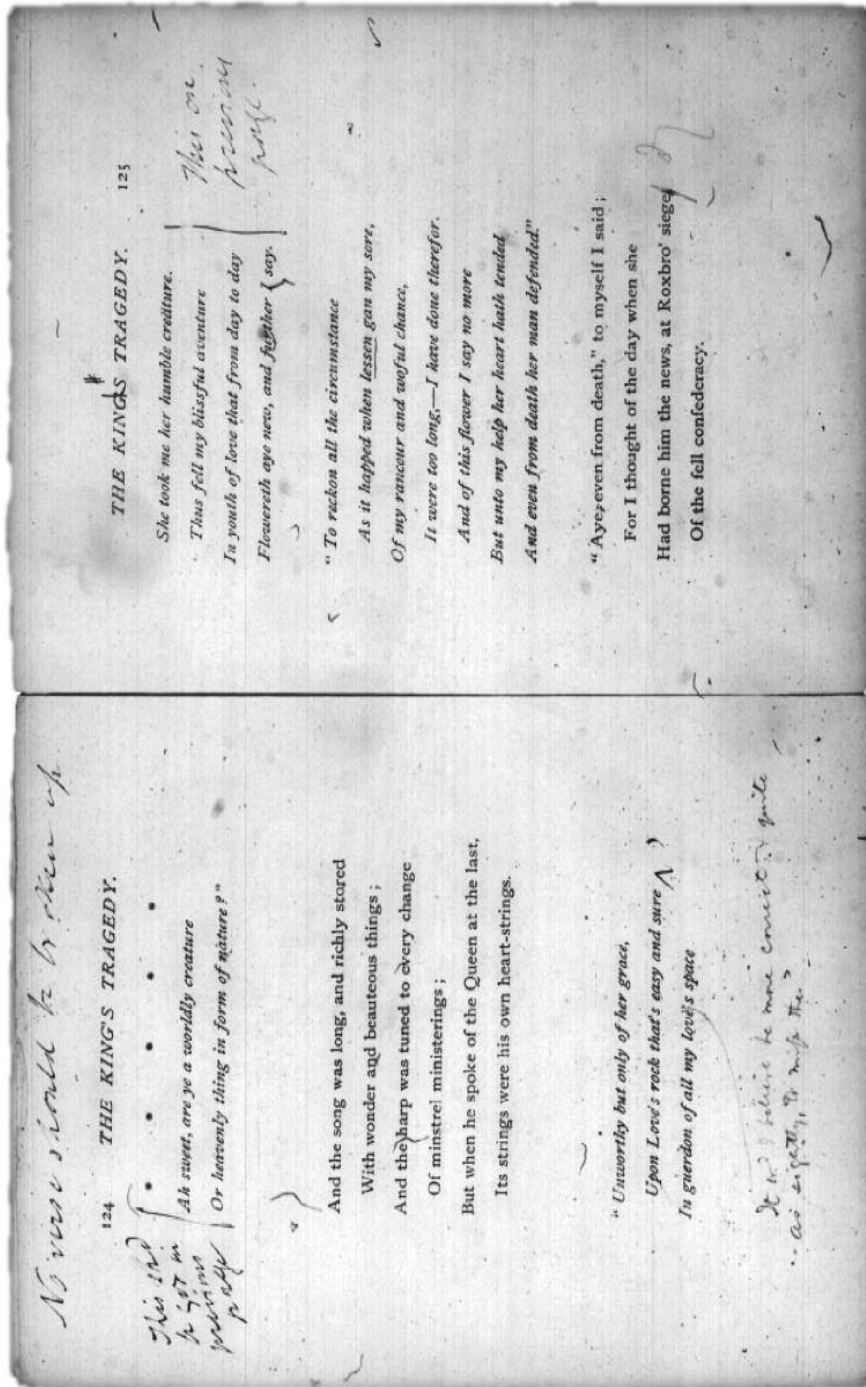 No verse should be broken up
124 THE KING'S TRAGEDY.
This shd
be got in
previous
page
* * * * *
Ah sweet, are ye a worldly creature
Or heavenly thing in form of nature?"
And the song was long, and richly stored
With wonder and beauteous things;
And the harp was tuned to every change
Of minstrel ministerings;
But when he spoke of the Queen at the last,
Its strings were his own heart-strings.
"Unworthy but only of her grace,
Upon Love's rock that's easy and sure
In guerdon of all my love's space
It wd I believe be more correct & quite
THE KING'S TRAGEDY. 125
She took me her humble creäture.
Thus fell my blissful aventure
In youth of love that from day to day
Flowereth aye new, and further say.
This on
previous
page.
"To reckon all the circumstance
As it happed when lessen gan my sore,
Of my rancour and woful chance,
It were too long,—I have done therefor.
And of this flower I say no more
But unto my help her heart hath tended
And even from death her man defended."
"Aye, even from death," to myself I said;
For I thought of the day when she
Had borne him the news, at Roxbro' siege,
Of the fell confederacy.